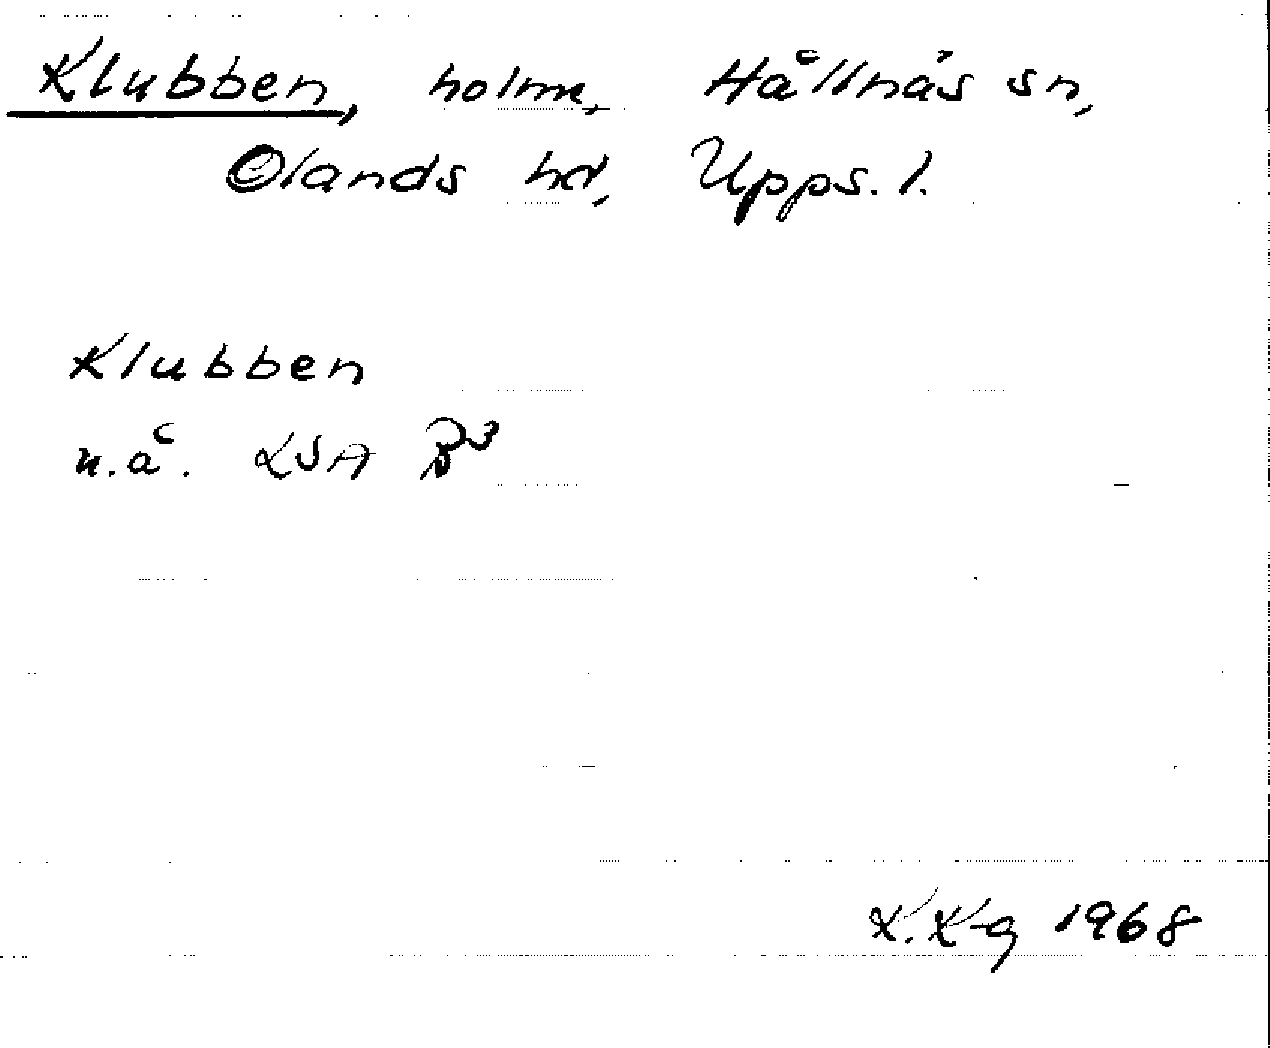 Klubben, holme, Hållnäs sn,
Olands hd, Upps. l.
Klubben
n.å. LSA B³
K.K-g 1968